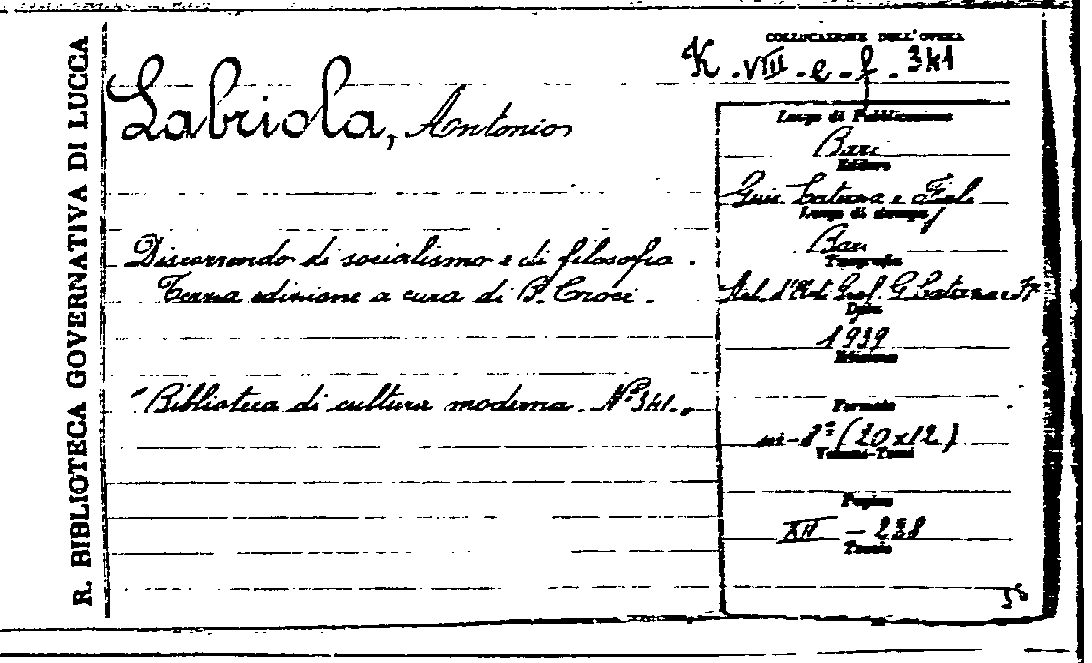 R. BIBLIOTECA GOVERNATIVA DI LUCCA
COLLOCAZIONE DELL'OPERA
K. VIII - e - f. 341
Labriola, Antonio
Discorrendo di socialismo e di filosofia.
Terza edizione a cura di B. Croce.
"Biblioteca di cultura moderna. Nº 341."
Luogo di Pubblicazione
Bari
Editore
Gius. Laterza e Figli
Luogo di stampa
Bari
Tipografia
d'Arti Graf. G. Laterza e F.
Data
1939
Edizione
Formato
in-8º (20x12)
Volumi-Tomi
Pagine
XII - 238
Tavole